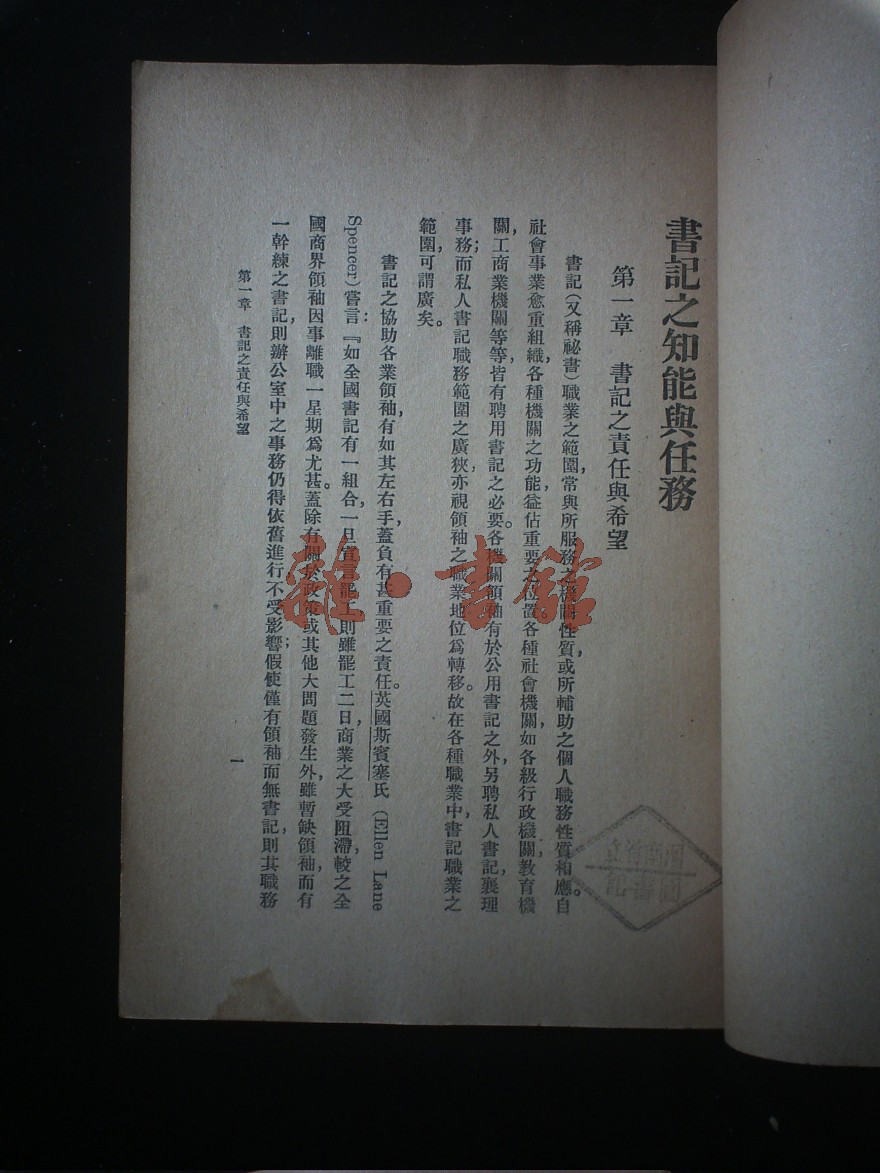 書記之知能與任務
第一章　書記之責任與希望
書記(又稱祕書)職業之範圍，常與所服務之機關性質，或所輔助之個人職務性質相應。自
社會事業愈重組織，各種機關之功能，益佔重要之位置。各種社會機關，如各級行政機關，教育機
關，工商業機關等等，皆有聘用書記之必要。各機關領袖有於公用書記之外，另聘私人書記，襄理
事務；而私人書記職務範圍之廣狹，亦視領袖之職業地位爲轉移。故在各種職業中，書記職業之
範圍，可謂廣矣。
書記之協助各業領袖，有如其左右手，蓋負有甚重要之責任。英國斯賓塞氏 (Ellen Lane
Spencer) 嘗言：『如全國書記有一組合，一旦宣言罷工，則雖罷工二日，商業之大受阻滯，較之全
國商界領袖因事離職一星期爲尤甚。蓋除有關於政策或其他大問題發生外，雖暫缺領袖，而有
一幹練之書記，則辦公室中之事務仍得依舊進行不受影響；假使僅有領袖而無書記，則其職務
第一章　書記之責任與希望
一
雜·書館